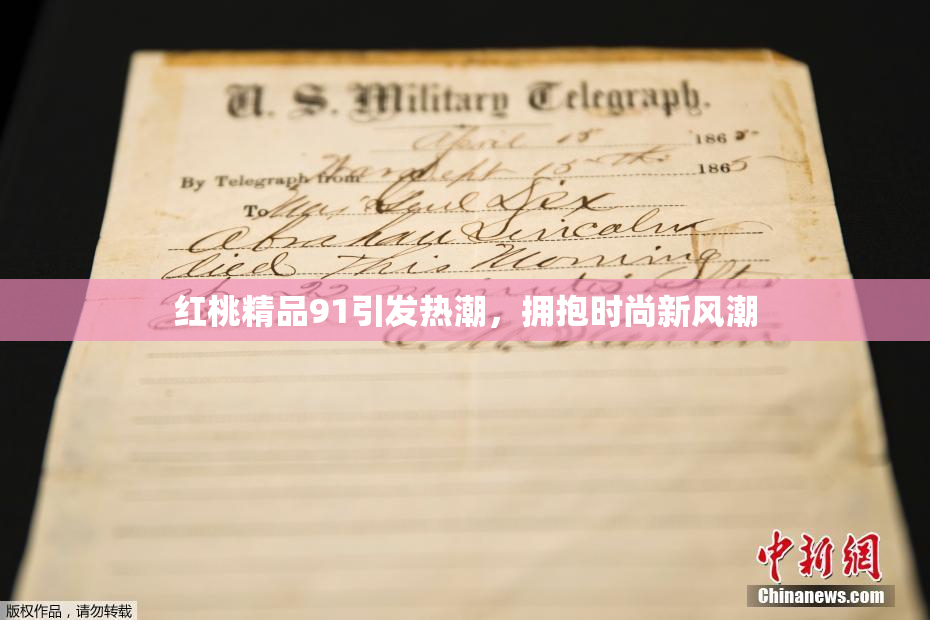 U. S. Military Telegraph.
April 15 1865
By Telegraph from War Dept 15th 1865
To Maj Genl Dix
Abraham Lincoln
died this Morning
22 minutes after
红桃精品91引发热潮，拥抱时尚新风潮
E. M. Stanton
中新网
Chinanews.com
版权作品，请勿转载